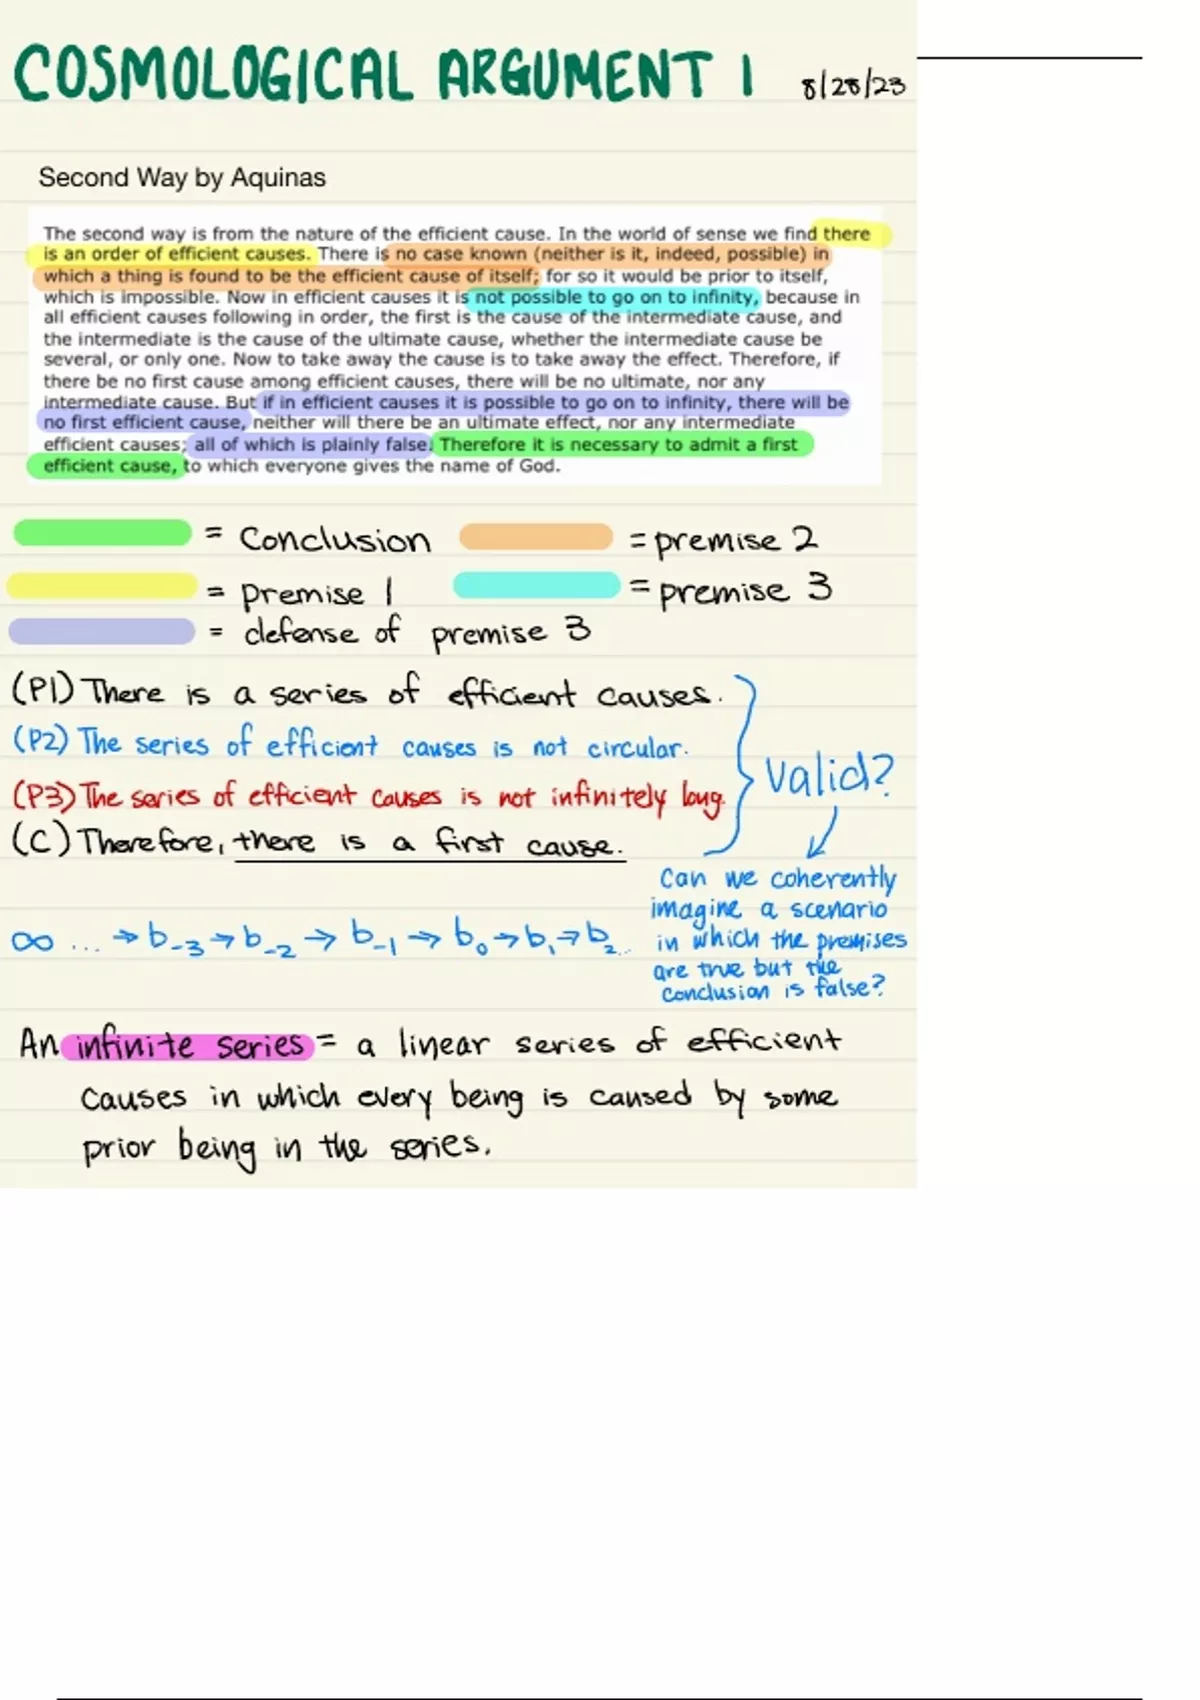 COSMOLOGICAL ARGUMENT 1 8/28/23
Second Way by Aquinas
The second way is from the nature of the efficient cause. In the world of sense we find there
is an order of efficient causes. There is no case known (neither is it, indeed, possible) in
which a thing is found to be the efficient cause of itself; for so it would be prior to itself,
which is impossible. Now in efficient causes it is not possible to go on to infinity, because in
all efficient causes following in order, the first is the cause of the intermediate cause, and
the intermediate is the cause of the ultimate cause, whether the intermediate cause be
several, or only one. Now to take away the cause is to take away the effect. Therefore, if
there be no first cause among efficient causes, there will be no ultimate, nor any
intermediate cause. But if in efficient causes it is possible to go on to infinity, there will be
no first efficient cause, neither will there be an ultimate effect, nor any intermediate
efficient causes; all of which is plainly false. Therefore it is necessary to admit a first
efficient cause, to which everyone gives the name of God.
= Conclusion = premise 2
= premise 1 = premise 3
= defense of premise 3
(P1) There is a series of efficient causes.
(P2) The series of efficient causes is not circular.
(P3) The series of efficient causes is not infinitely long.
(C) Therefore, there is a first cause.
Valid?
Can we coherently
imagine a scenario
in which the premises
are true but the
conclusion is false?
∞ ... → b₋₃ → b₋₂ → b₋₁ → b₀ → b₁ → b₂...
An infinite series = a linear series of efficient
causes in which every being is caused by some
prior being in the series.